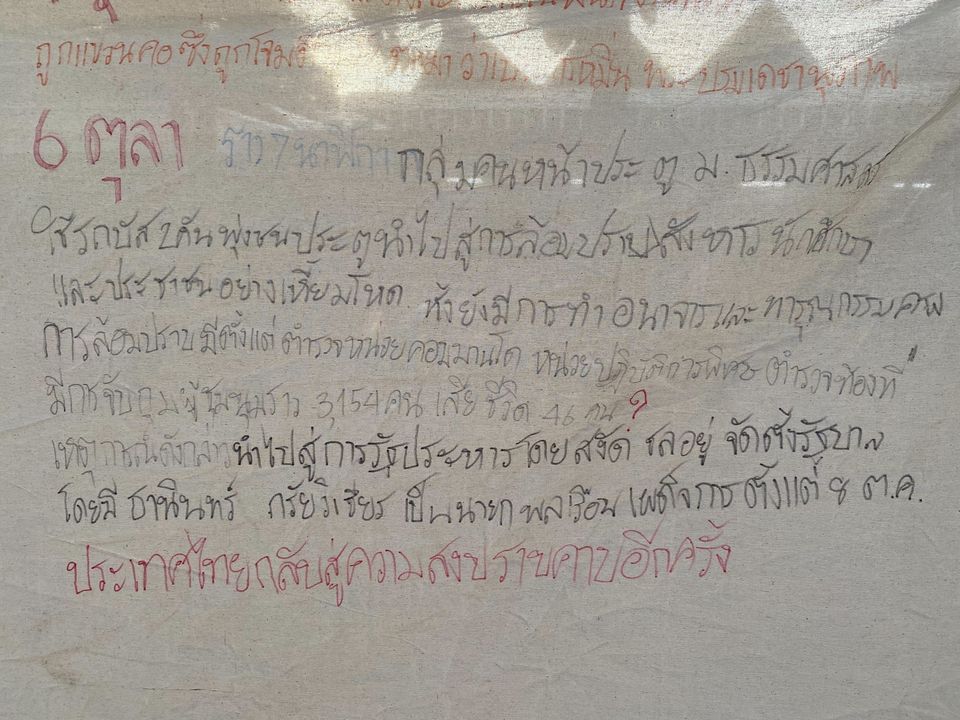 ถูกแขวนคอซึ่งถูกโจมตี ว่าเป็นการหมิ่นพระบรมเดชานุภาพ
6 ตุลา ราว 7 นาฬิกา กลุ่มคนหน้าประตู ม. ธรรมศาสตร์
ใช้รถบัส 2 คันพุ่งชนประตูนำไปสู่การล้อมปราบสังหารนักศึกษา
และประชาชนอย่างเหี้ยมโหด ทั้งยังมีการทำอนาจารและทารุณกรรมศพ
การล้อมปราบมีตั้งแต่ตำรวจหน่วยคอมมานโด หน่วยปฏิบัติการพิเศษ ตำรวจท้องที่
มีการจับกุมผู้ชุมนุมราว 3,154 คน เสียชีวิต 46 คน ?
เหตุการณ์ดังกล่าวนำไปสู่การรัฐประหารโดย สงัด ชลออยู่ จัดตั้งรัฐบาล
โดยมี ธานินทร์ กรัยวิเชียร เป็นนายกพลเรือน เผด็จการ ตั้งแต่ 8 ต.ค.
ประเทศไทยกลับสู่ความสงบราบคาบอีกครั้ง